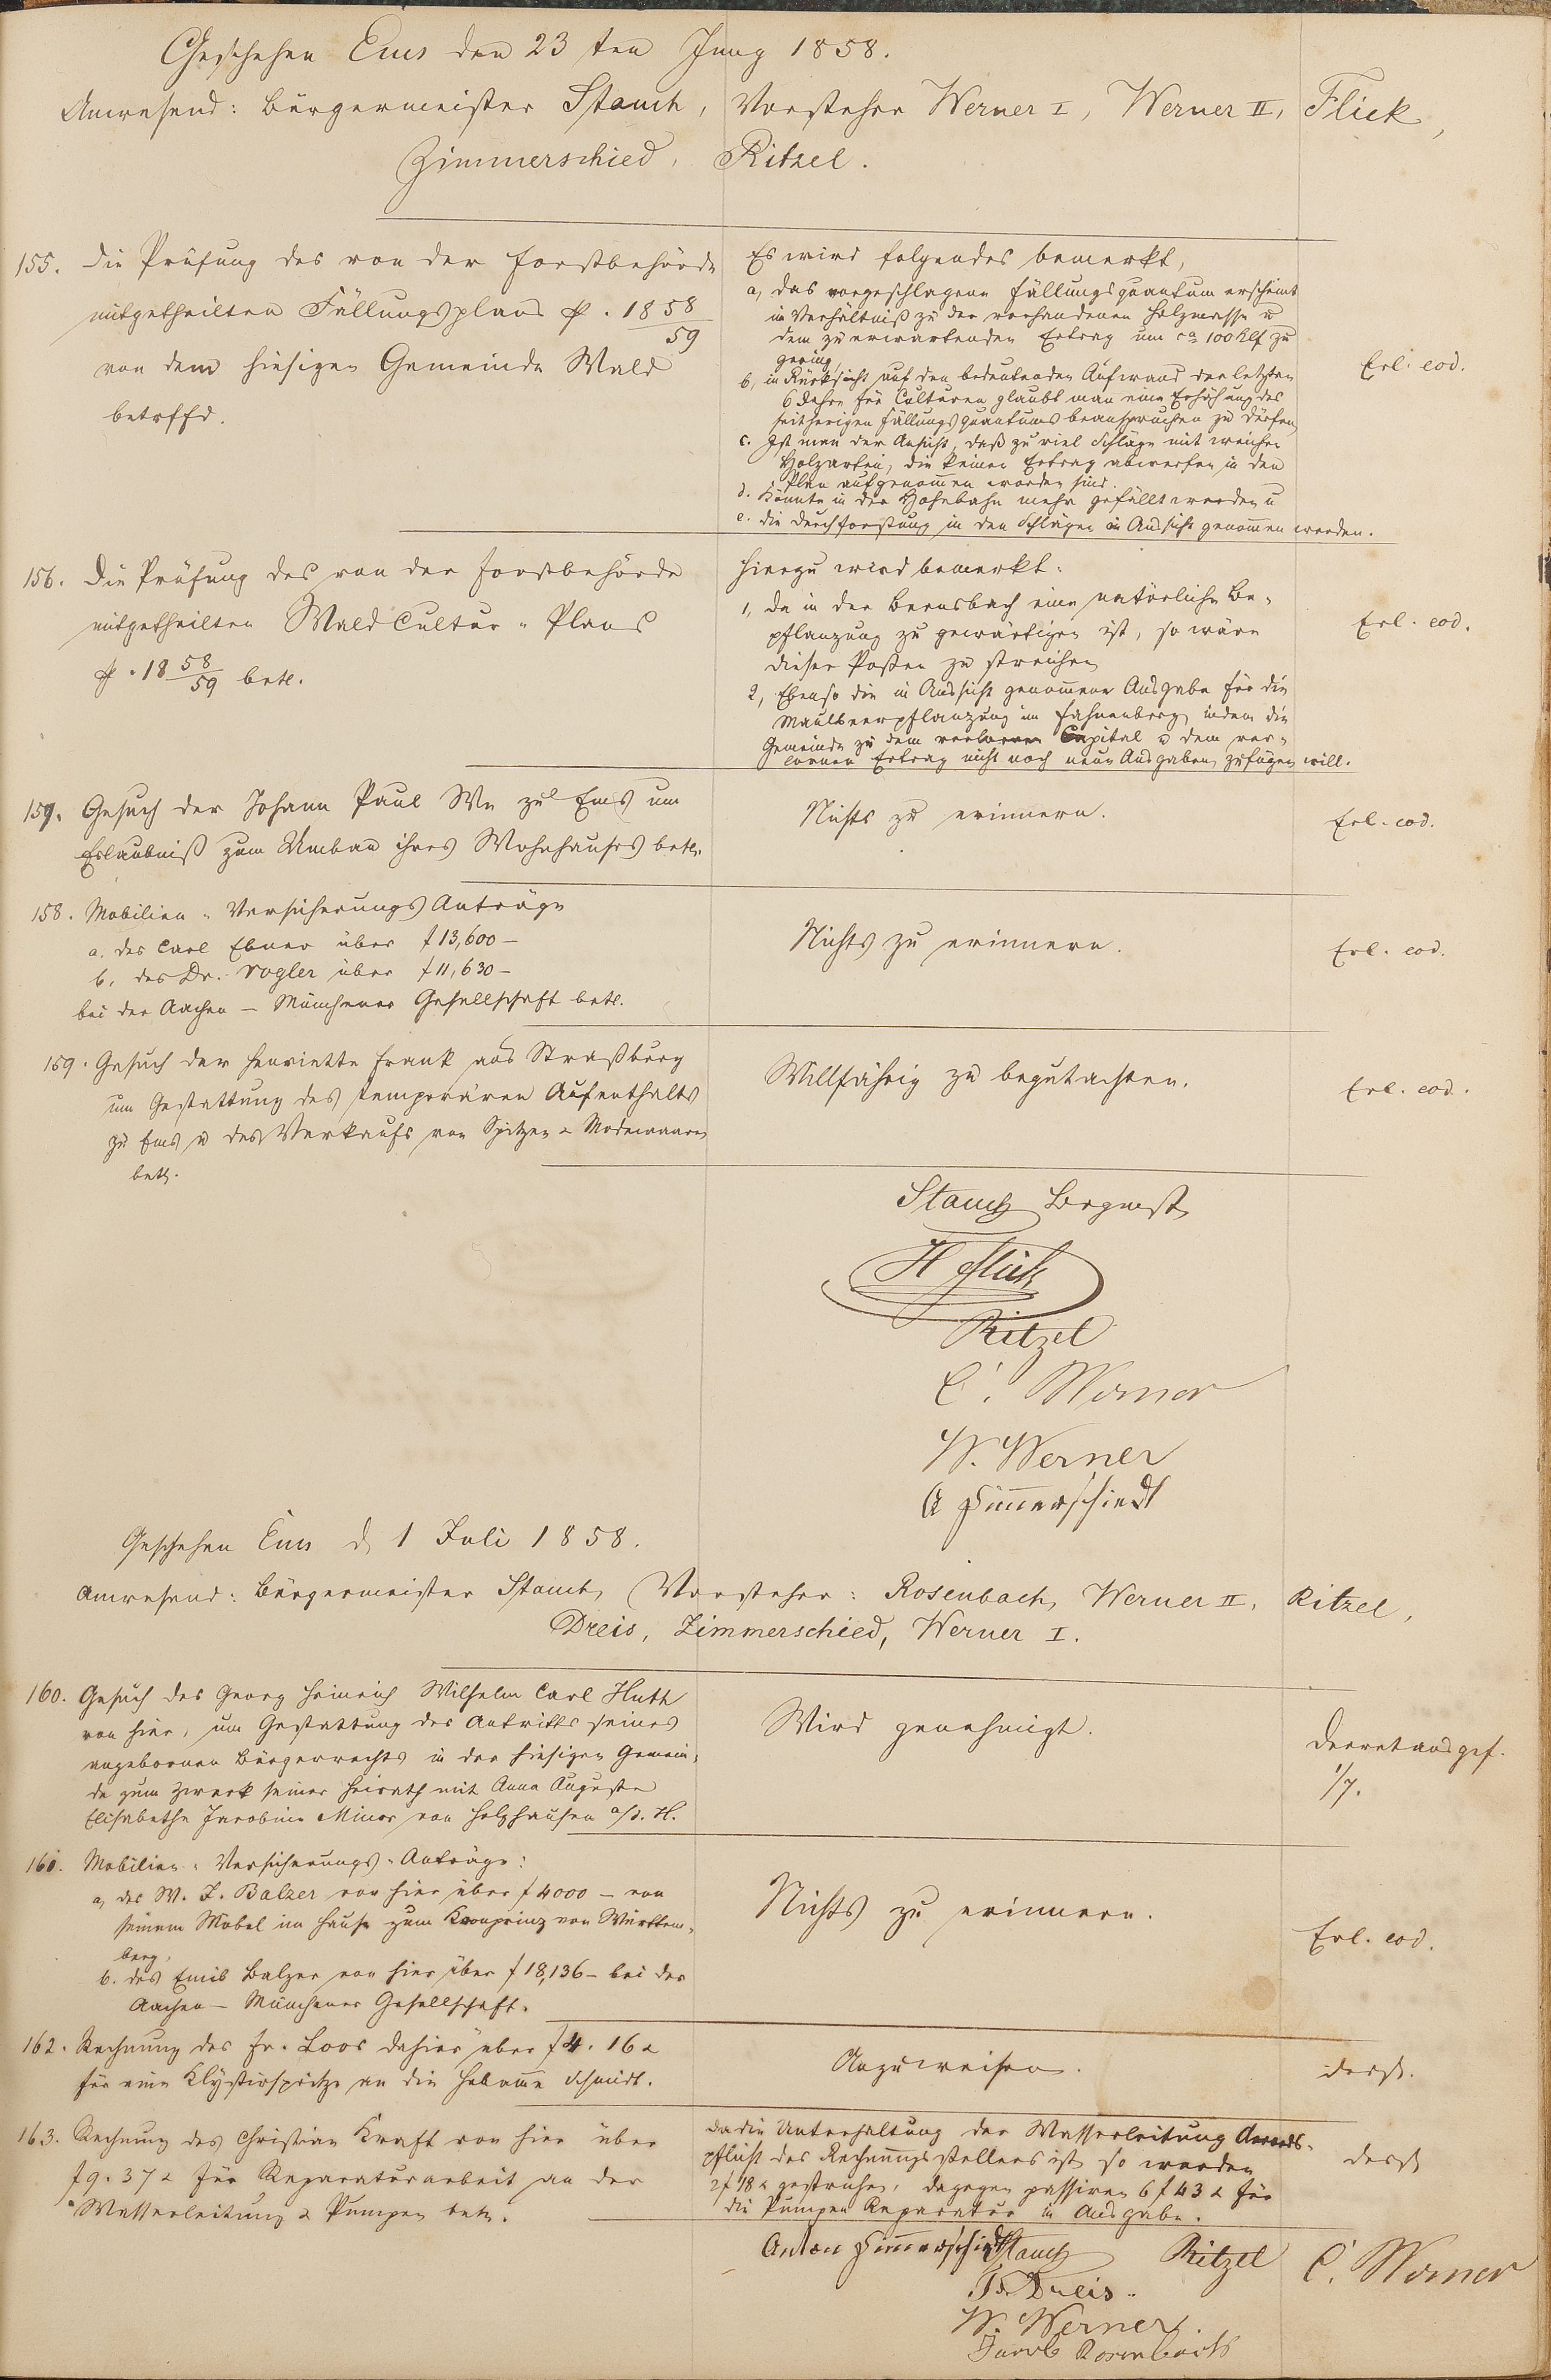 Geschehen Ems den 23ten Juny 1858.
Anwesend: Bürgermeister Stauch, Vorsteher Werner I, Werner II, Flick,
Zimmerschied, Ritzel.
155. Die Prüfung des von der Forstbehörde
mitgetheilten Fällungsplans p. 1858/59
von dem hiesigen Gemeinde Wald
betrffd.
Es wird folgendes bemerkt,
a, das vorgeschlagene Fällungsquantum erscheint
in Verhältniß zu der vorhandenen Holzmasse u
dem zu erwartenden Ertrag um ca 100 Klf zu
gering,
b, in Rücksicht auf den bedeutenden Aufwand der letzten
6 Jahre für Culturen glaubt man eine Erhöhung des
seitherigen Fällungsquantums beanspruchen zu dürfen,
c. Ist man der Ansicht, daß zu viel Schläge mit weichen
Holzarten, die keinen Ertrag abwerfen in den
Plan aufgenommen worden sind.
d. könnte in der Hohebahn mehr gefällt werden u
e. die Durchforstung in den Schlägen in Aussicht genommen werden.
Erl. eod.
156. Die Prüfung des von der Forstbehörde
mitgetheilten Wald Cultur-Plans
p. 1858/59 betr.
Hierzu wird bemerkt:
1, da in der Bernsbach eine natürliche Be-
pflanzung zu gewärtigen ist, so wäre
dieser Posten zu streichen
2, Ebenso die in Aussicht genommene Ausgabe für die
Maulbeerpflanzung im Fahnenberg, indem die
Gemeinde zu dem verlornen Capital u dem ver-
lornen Ertrag nicht noch neue Ausgaben zufügen will.
Erl. eod.
157. Gesuch der Johann Paul We zu Ems um
Erlaubniß zum Umbau ihres Wohnhauses betr.
Nichts zu erinnern.
Erl. eod.
158. Mobilien-Versicherungs Anträge
a. des Carl Ebner über f 13,600 —
b. des Dr. Vogler über f 11,630 —
bei der Aachen — Münchener Gesellschaft betr.
Nichts zu erinnern.
Erl. eod.
159. Gesuch der Henriette Frank aus Straßburg
um Gestattung des temporären Aufenthalts
zu Ems u des Verkaufs von Spitzen & Modewaaren
betr.
Willfährig zu begutachten.
Erl. eod.
Stauch Brgmstr
H Flick
Ritzel
C. Werner
W. Werner
A Zimmerschiedt
Geschehen Ems d. 1 Juli 1858.
Anwesend: Bürgermeister Stauch, Vorsteher: Rosenbach, Werner II, Ritzel,
Dreis, Zimmerschied, Werner I.
160. Gesuch des Georg Heinrich Wilhelm Carl Huth
von hier, um Gestattung des Antritts seines
angebornen Bürgerrechts in der hiesigen Gemein-
de zum Zweck seiner Heirath mit Anna Auguste
Elisabethe Jacobine Minor von Holzhausen a/d. H.
Wird genehmigt.
Decret ausgef.
1/7.
161. Mobilien-Versicherungs-Anträge:
a, des W. J. Balzer von hier über f 4000 — von
seinem Mobel im Hause zum Kronprinz von Würtem-
berg.
b. des Emil Balzer von hier über f 18,136 — bei der
Aachen — Münchener Gesellschaft.
Nichts zu erinnern.
Erl. eod.
162. Rechnung des Fr. Loos dahier über f 4. 16 x
für eine Klystirspritze an die Hebamme Schmidt.
Anzuweisen.
desgl.
163. Rechnung des Christian Kraft von hier über
f 9. 37 x für Reparaturarbeit an der
Wasserleitung & Pumpen betr.
Da die Unterhaltung der Wasserleitung
pflicht des Rechnungsstellers ist, so werden
2 f 18 x gestrichen, dagegen passiren 6 f 43 x für
die Pumpen Reparatur in Ausgabe.
desgl
Anton Zimmerschiedt Stauch Ritzel C. Werner
Dreis.
W. Werner
Jacob Rosenbach